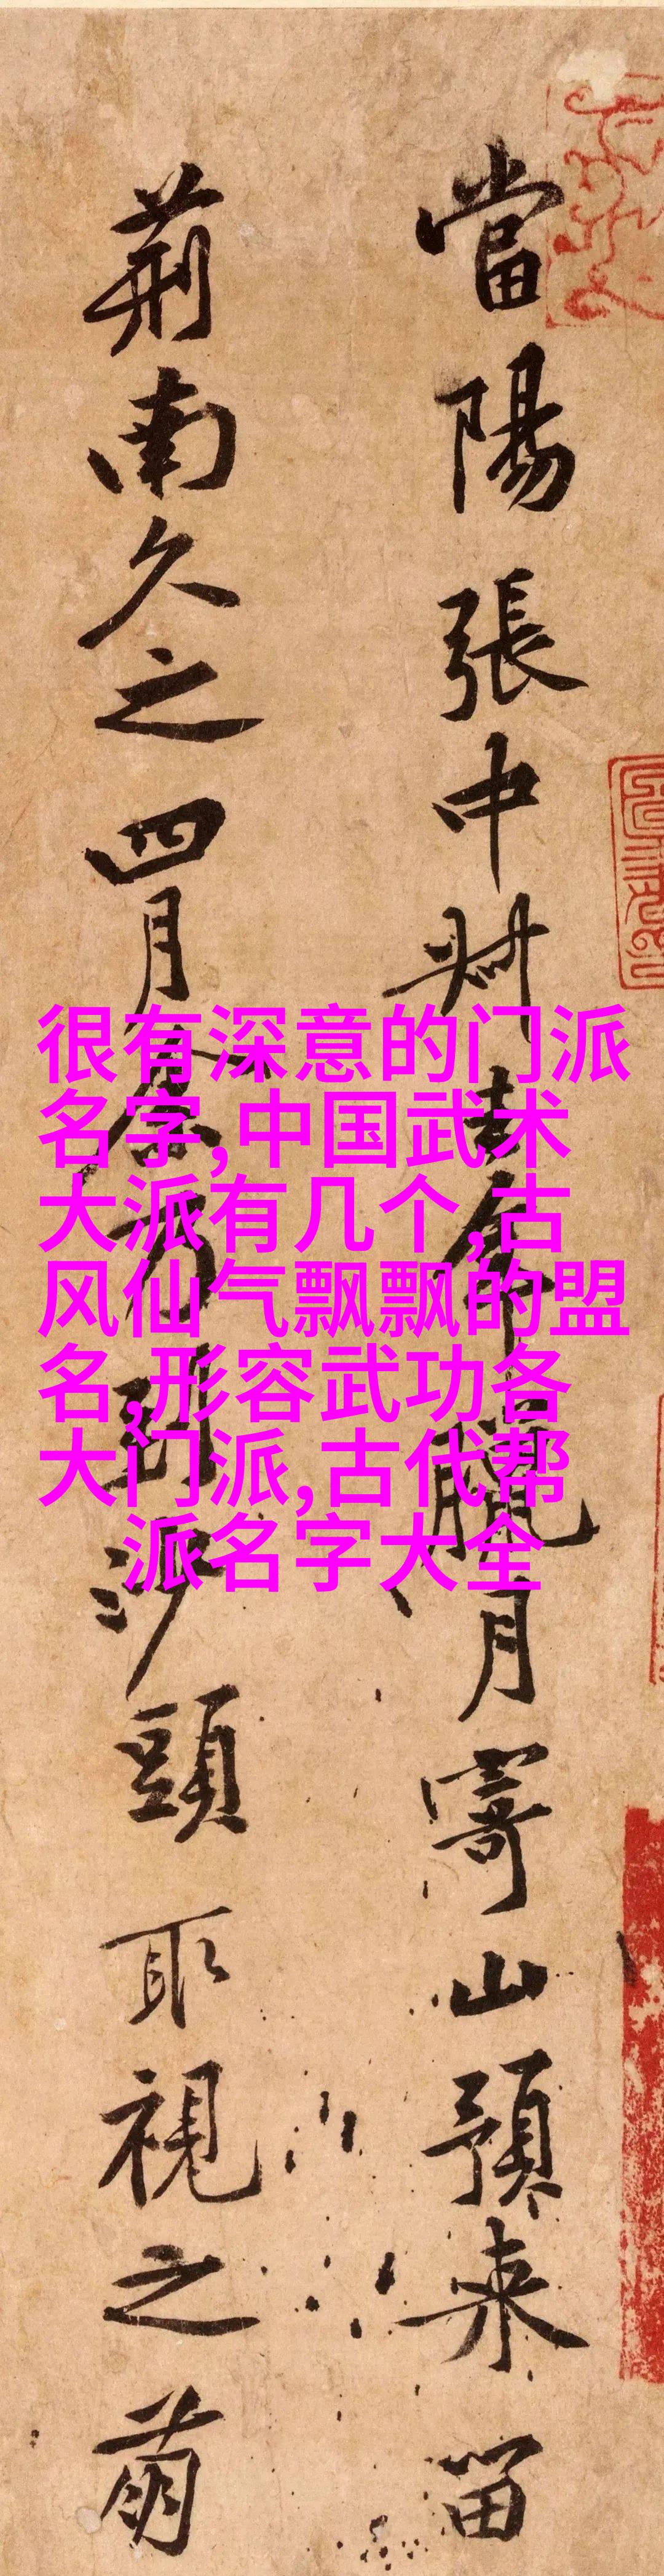 當陽張中叔去年臘月寄山預来留
荊南久之四月余方到沙頭取視之萌
很有深意的门派
名字,中国武术
大派有几个,古
风仙气飘飘的盟
名,形容武功各
大门派,古代帮
派名字大全